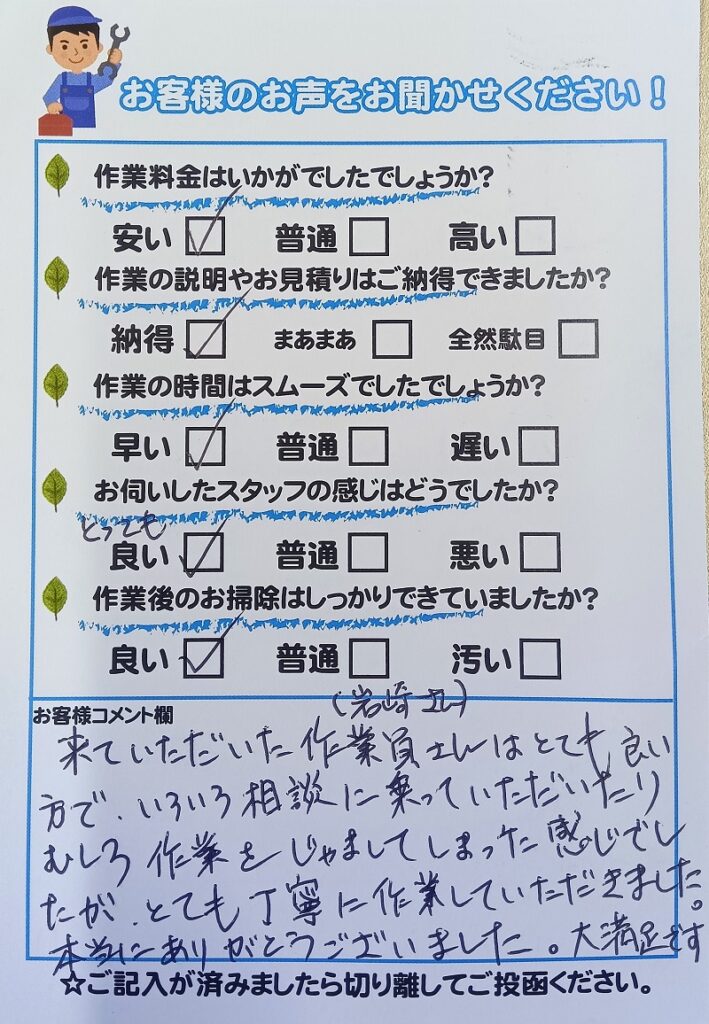 お客様のお声をお聞かせください！
作業料金はいかがでしたでしょうか?
安い 普通 高い
作業の説明やお見積りはご納得できましたか?
納得 まあまあ 全然駄目
作業の時間はスムーズでしたでしょうか?
早い 普通 遅い
お伺いしたスタッフの感じはどうでしたか?
とっても
良い 普通 悪い
作業後のお掃除はしっかりできていましたか?
良い 普通 汚い
お客様コメント欄
(岩崎さん)
来ていただいた作業員さんはとても良い
方で、いろいろ相談に乗っていただいたり
むしろ作業をじゃましてしまった感じでし
たが、とても丁寧に作業していただきました。
本当にありがとうございました。大満足です
☆ご記入が済みましたら切り離してご投函ください。